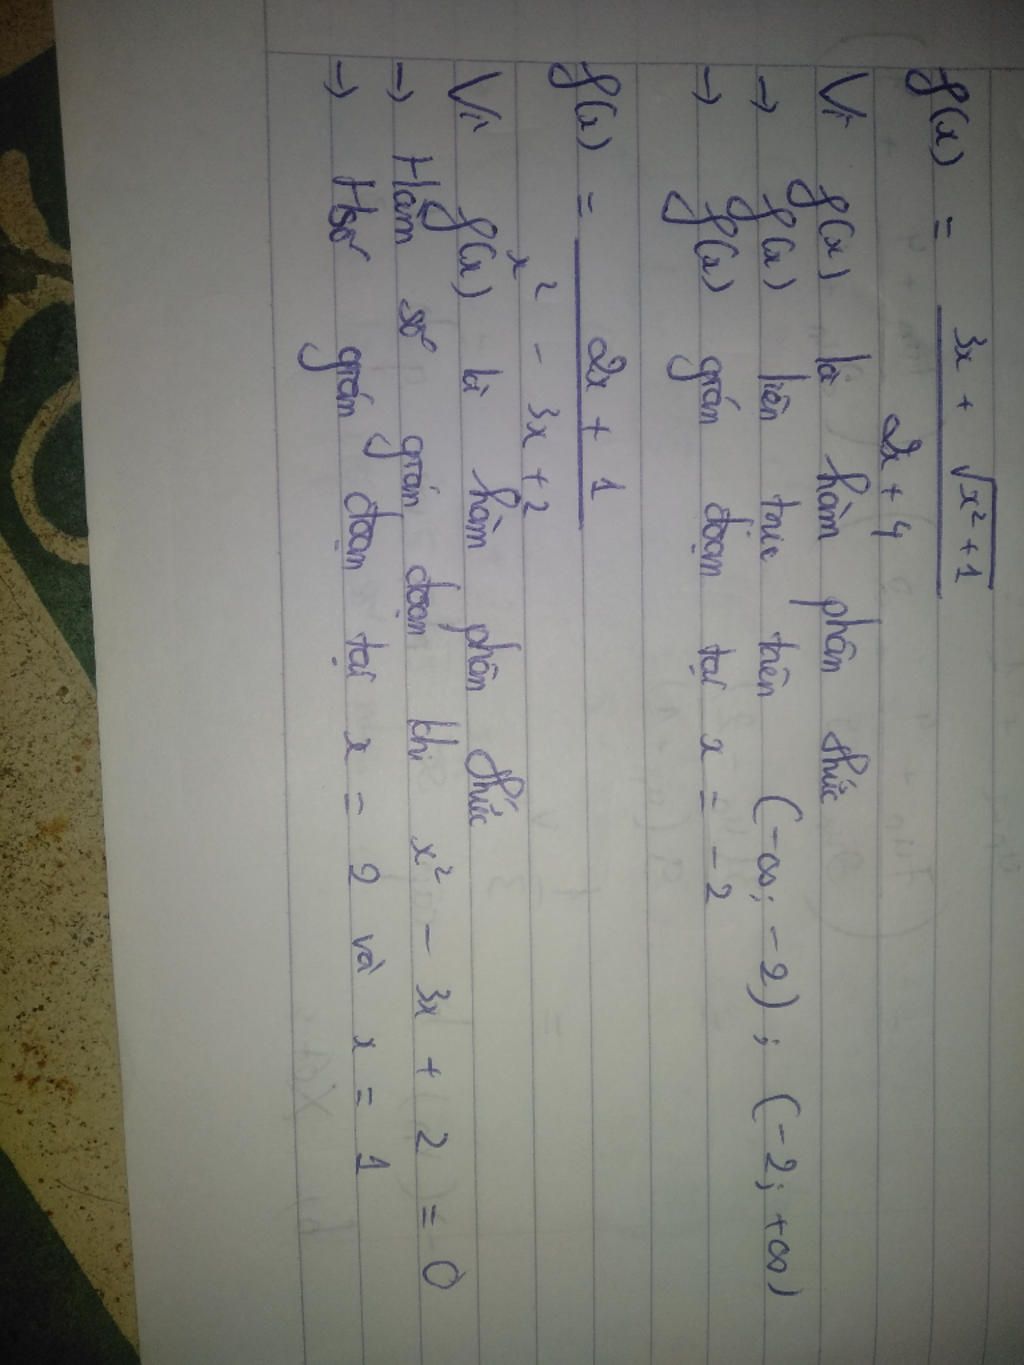 f(x) = 3x + √x² + 1
2x + 4
Vì f(x) là hàm phân thức
→ f(x) liên tục trên (-∞; -2); (-2; +∞)
→ f(x) gián đoạn tại x = -2
f(x) = 2x + 1
x² - 3x + 2
Vì f(x) là hàm phân thức
→ Hàm số gián đoạn khi x² - 3x + 2 = 0
→ Hsố gián đoạn tại x = 2 và x = 1